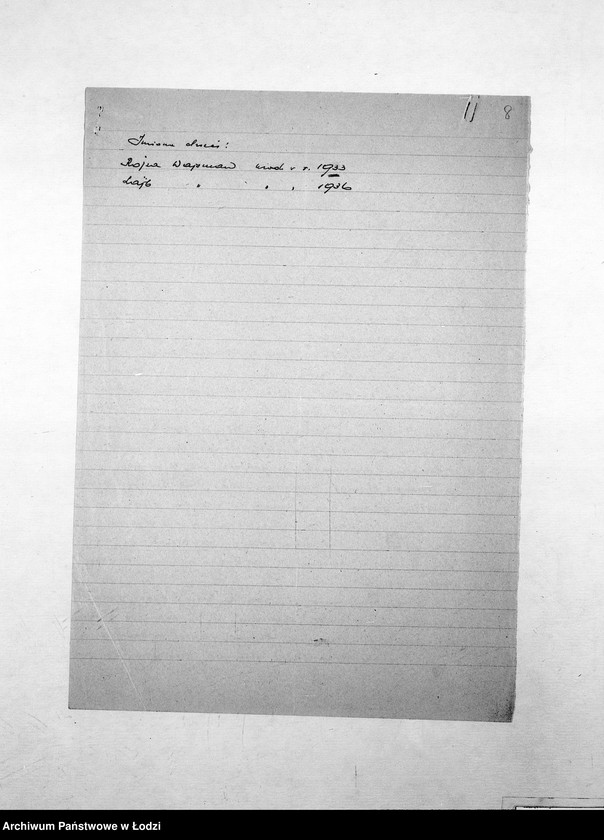 8
Imiona dzieci:
Rojza Wajsman urod w r. 1933
Lajb " " " 1936
Archiwum Państwowe w Łodzi